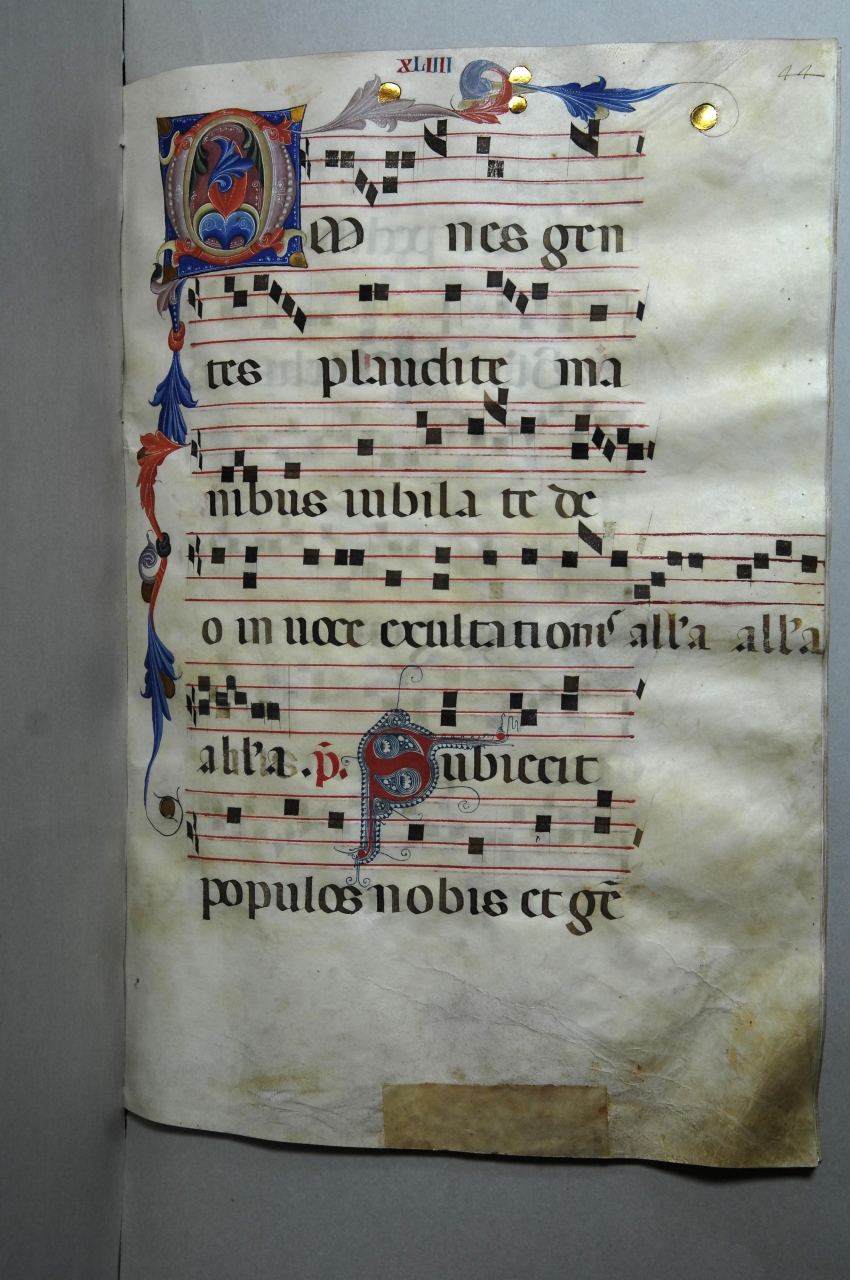 XLIIII
44
Om nes gen
tes plaudite ma
nibus iubila te de
o in uoce exultationis all'a all'a
all'a. p̃. Subiecit
populos nobis et gẽ